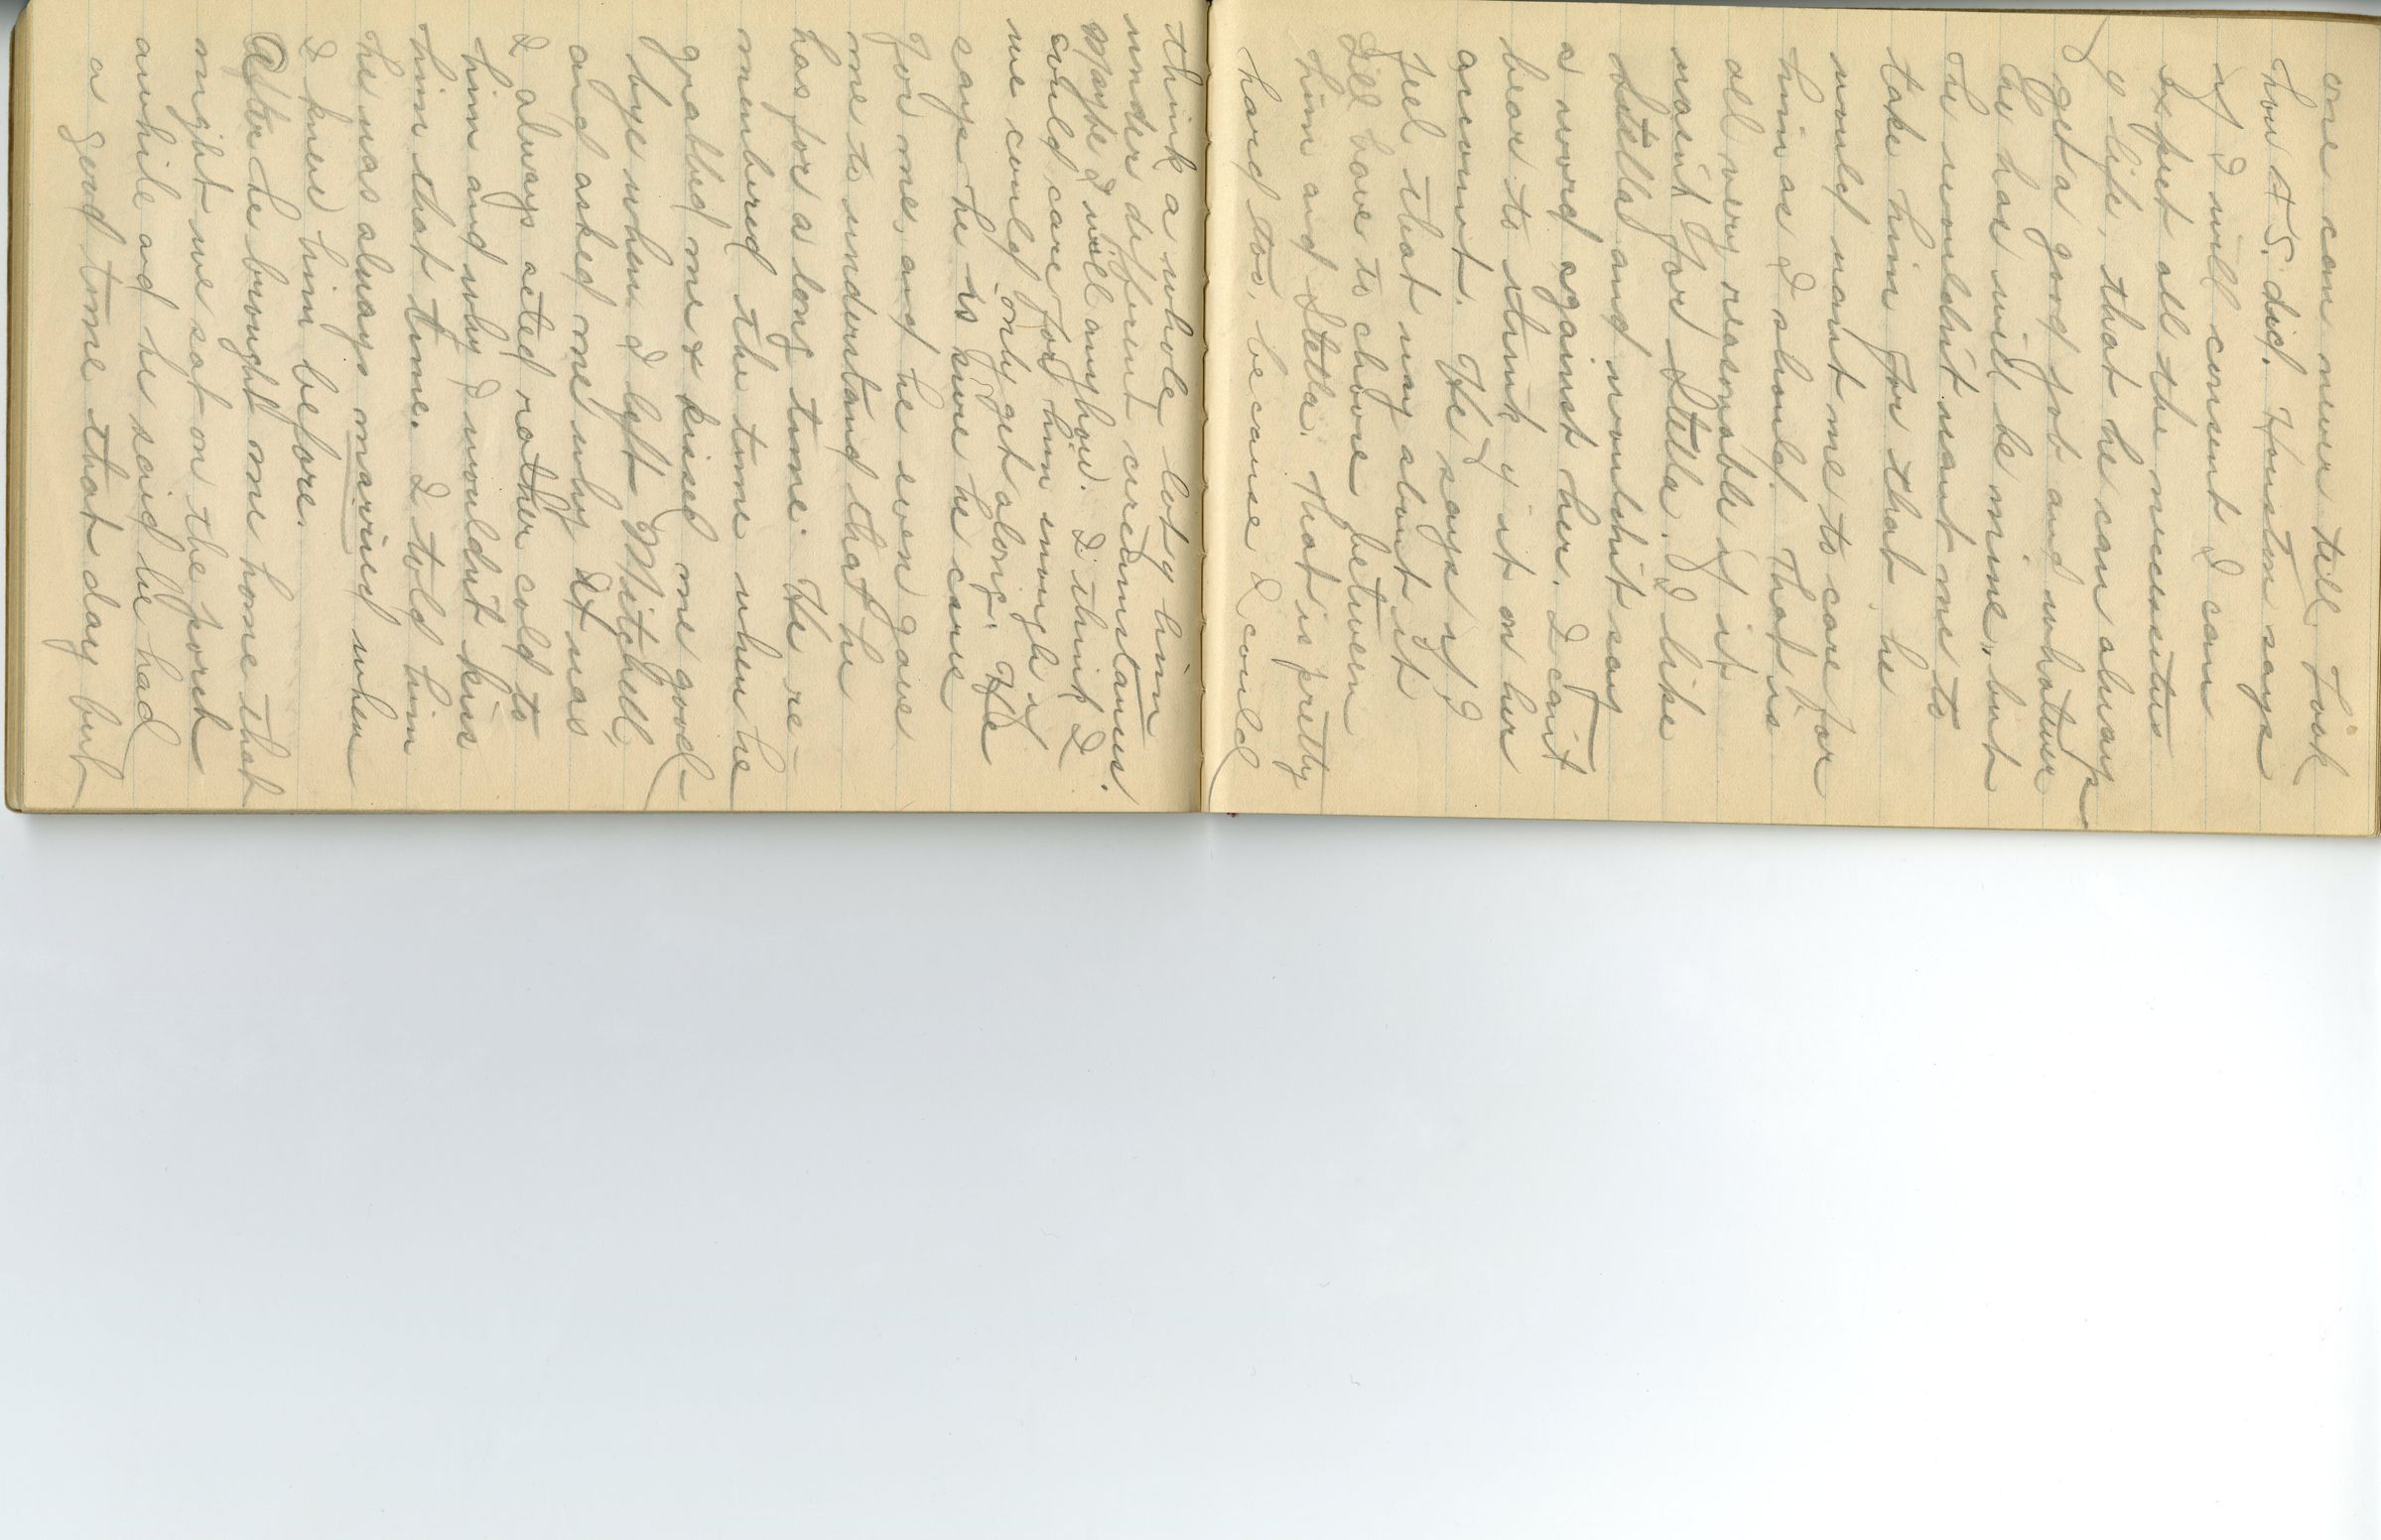 one can never tell. Look
how A S. died. Houston says
if I will consent I can
expect all the necessities
of life, that he can always
get a good job and whatever
he has will be mine, but
he wouldn't want me to
take him for that he
would want me to care for
him as I should. That is
all very reasonable if it
wasn't for Stella. I like
Stella and wouldn't say
a word against her. I can't
bear to think of it on her
account. He says if I
feel that way about it
I'll have to choose between
him and Stella. That is pretty
hard too, because I could
think a whole lot of him
under different circumstances.
Maybe I will anyhow. I think I
could care for him enough if
we could only get along. He
says he is sure he cares
for me, and he even gave
me to understand that he
has for a long time. He re-
membered the time when he
grabbed me & kissed me good-
bye when I left Mitchell,
and asked me why it was
I always acted rather cold to
him and why I wouldn't kiss
him that time. I told him
he was always married when
I knew him before.
After he brought me home that
night we sat on the porch
awhile and he said he had
a good time that day but